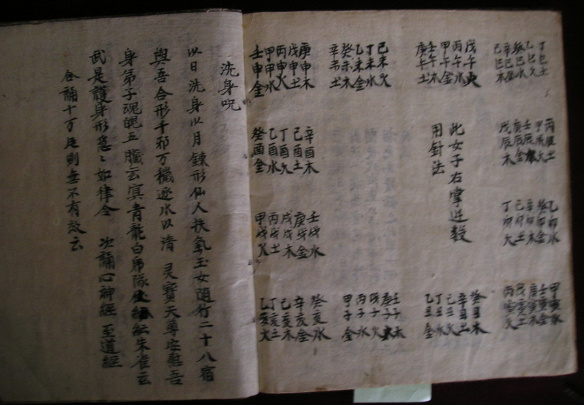 丁巳土
乙巳火
癸巳水
辛巳金
己巳木
戊午火
丙午水
甲午金
壬午木
庚午土
己未火
丁未水
乙未金
癸未木
辛未土
庚申木
戊申土
丙申火
甲申水
壬申金
丙辰土
甲辰火
壬辰水
庚辰金
戊辰木
此女子右掌逆數
用針法
辛酉木
己酉土
丁酉火
乙酉水
癸酉金
乙卯水
癸卯金
辛卯木
己卯土
丁卯火
壬戌水
庚戌金
戊戌木
丙戌土
甲戌火
甲寅水
壬寅金
庚寅木
戊寅土
丙寅火
癸丑木
辛丑土
己丑火
丁丑水
乙丑金
壬子木
庚子土
戊子火
丙子水
甲子金
癸亥水
辛亥金
己亥木
丁亥土
乙亥火
洗身呪
以日洗身以月鍊形仙人扶氣玉女随行二十八宿
與吾合形千邪万穢逐水以清 灵寳天尊安慰吾
身弟子魂魄五臟玄冥青龍白虎隊紛紜朱雀玄
武是護身形急〻如律令 次誦心神經 至道經
合誦十万遍則無不有效云